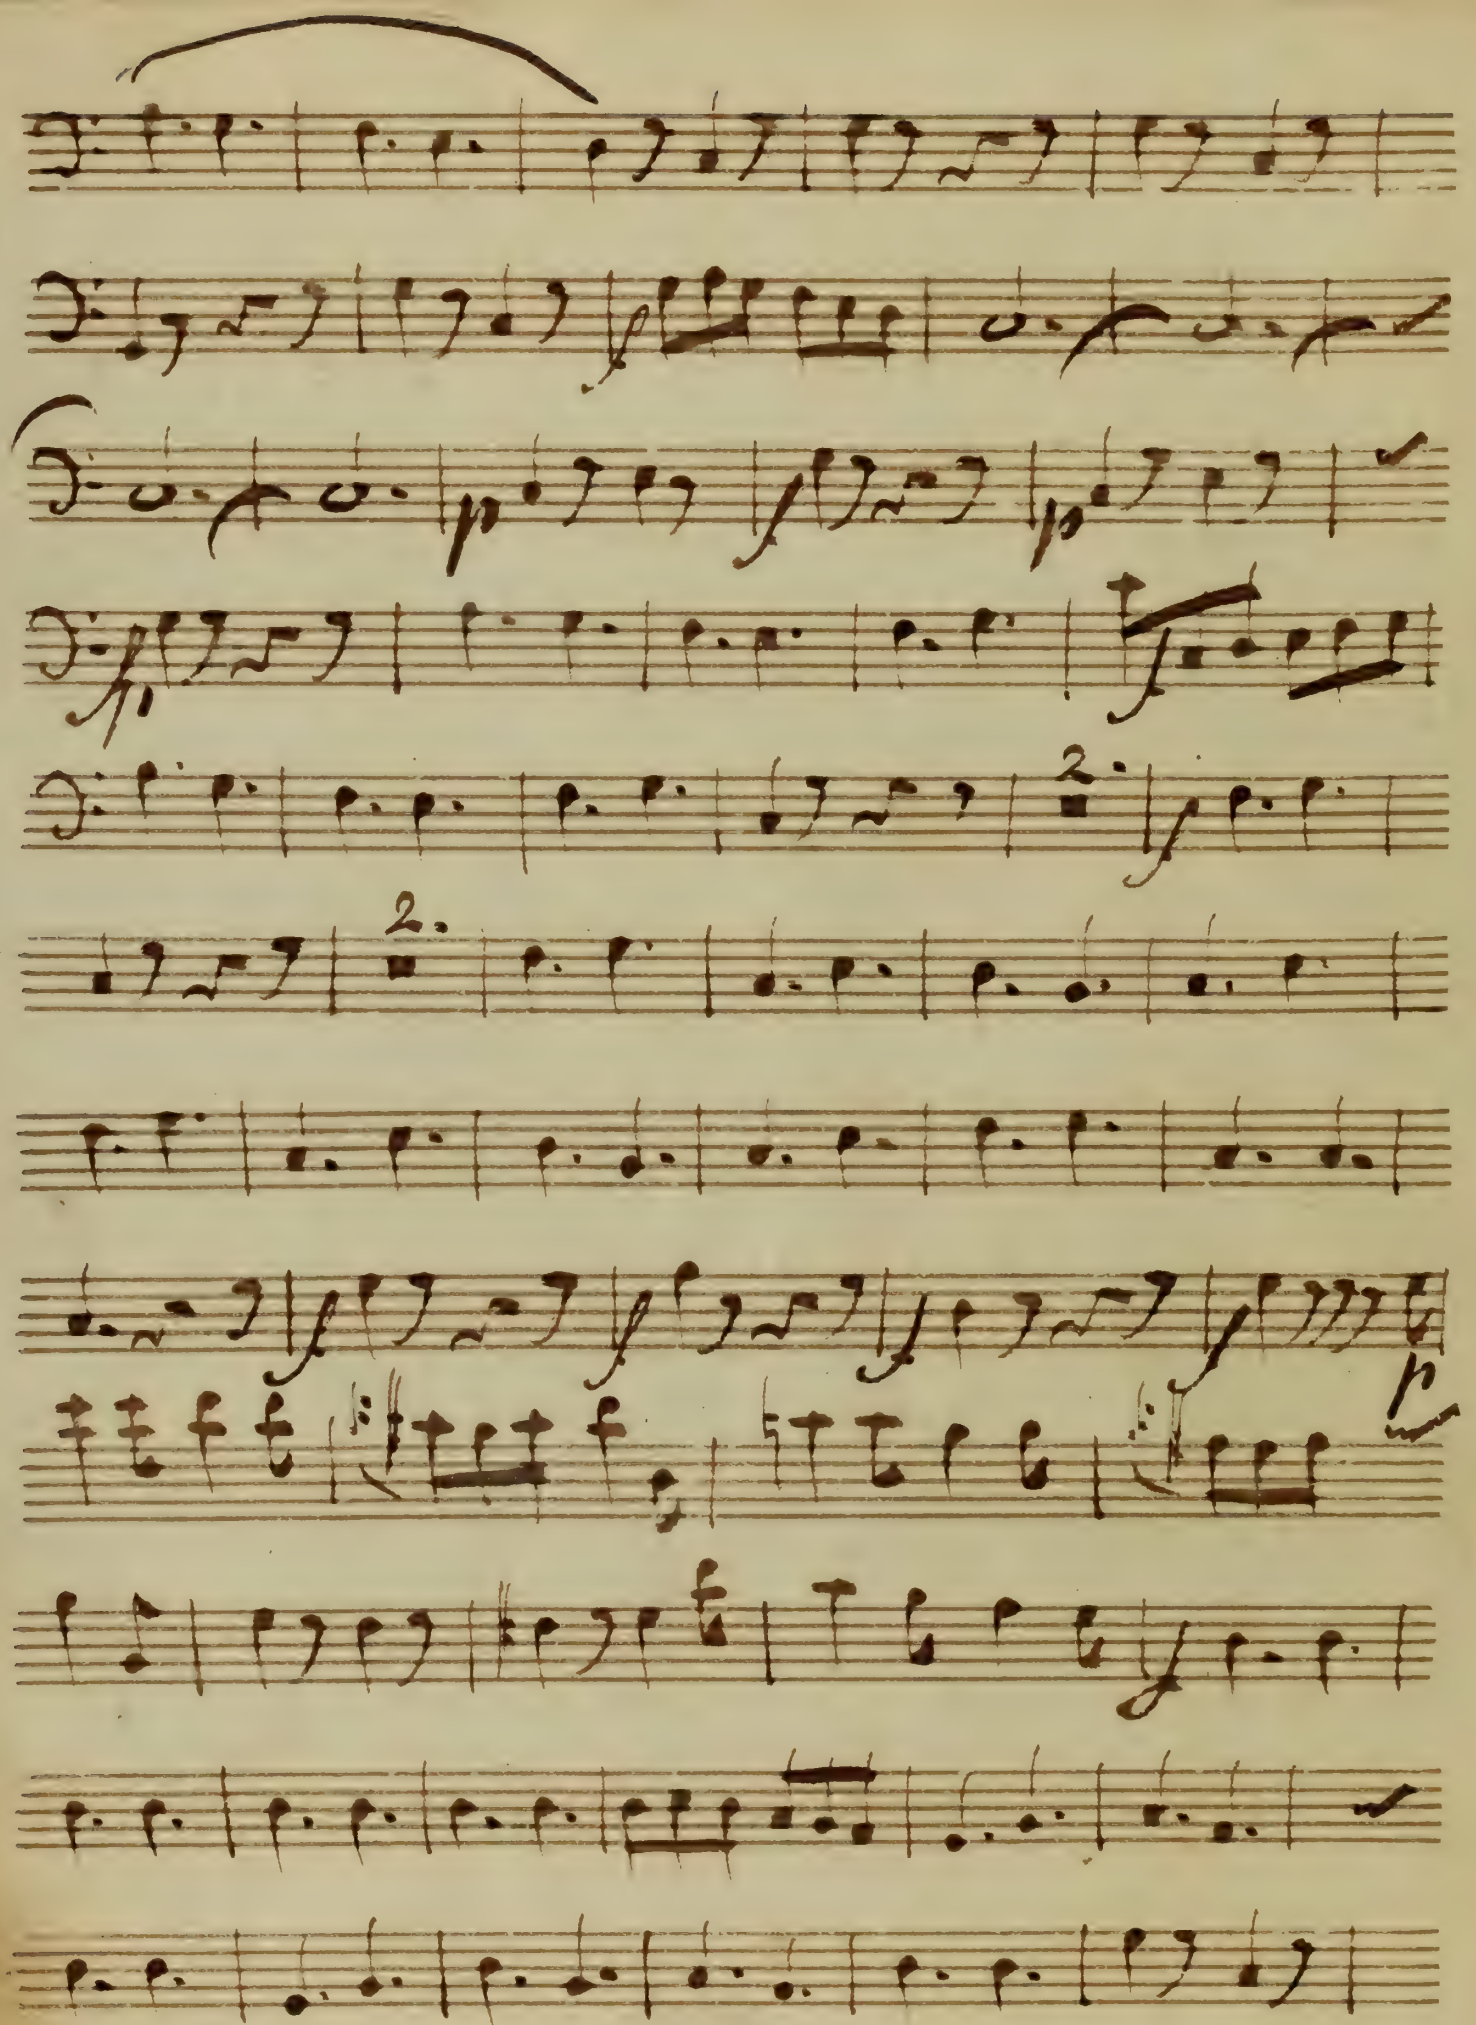 f
p f p
fp f
2. f
2.
f f f f p
f